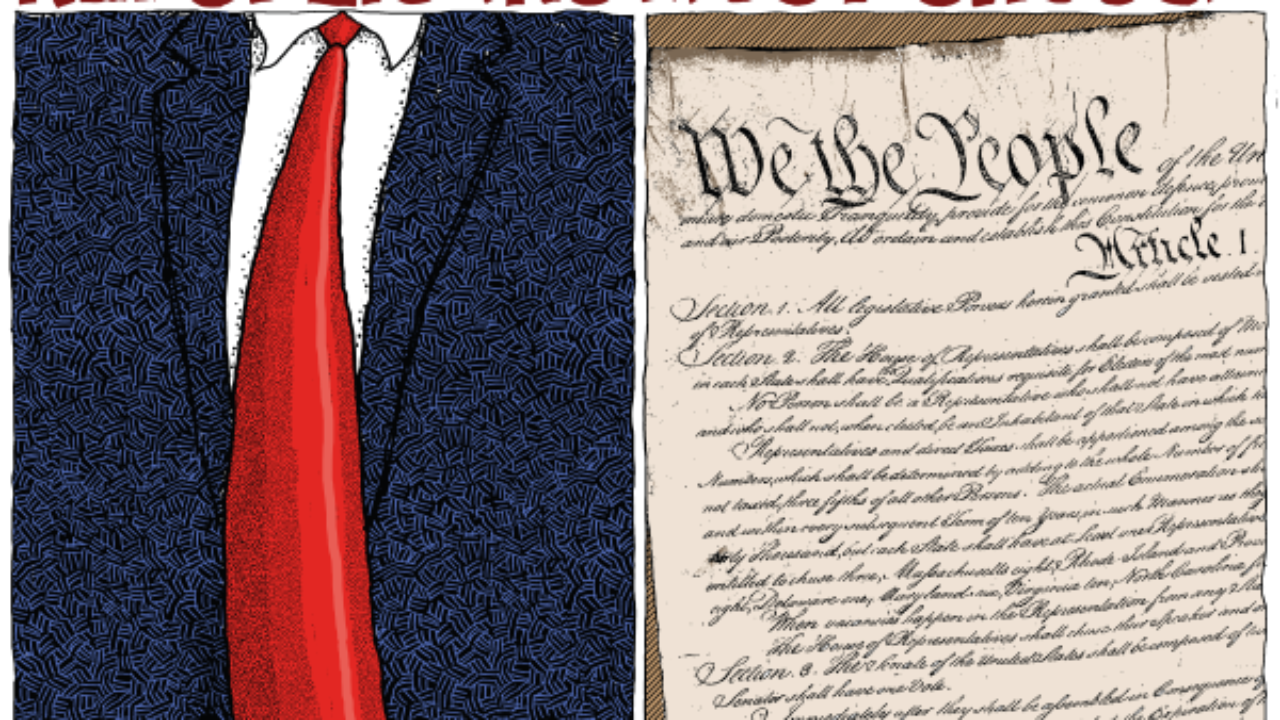 We the People of the Un
domestic Tranquility, provide for the common defence, prom
and our Posterity, do ordain and establish this Constitution for the
Article 1.
Section. 1. All legislative Powers herein granted shall be vested
of Representatives.
Section. 2. The House of Representatives shall be composed of
in each State shall have Qualifications requisite for Electors of the most num
No Person shall be a Representative who shall not have attained
and who shall not, when elected, be an Inhabitant of that State in which
Representatives and direct Taxes shall be apportioned among the
Numbers, which shall be determined by adding to the whole Number of
not taxed, three fifths of all other Persons. The actual Enumeration
and within every subsequent Term of ten Years, in such Manner as they
Thousand, but each State shall have at Least one Representative
entitled to chuse three, Massachusetts eight, Rhode Island and Prov
eight, Delaware one, Maryland six, Virginia ten, North Carolina
When vacancies happen in the Representation from any
The House of Representatives shall chuse their Speaker and
Section. 3. The Senate of the United States shall be composed of
Senator shall have one Vote.
Immediately after they shall be assembled in Consequence